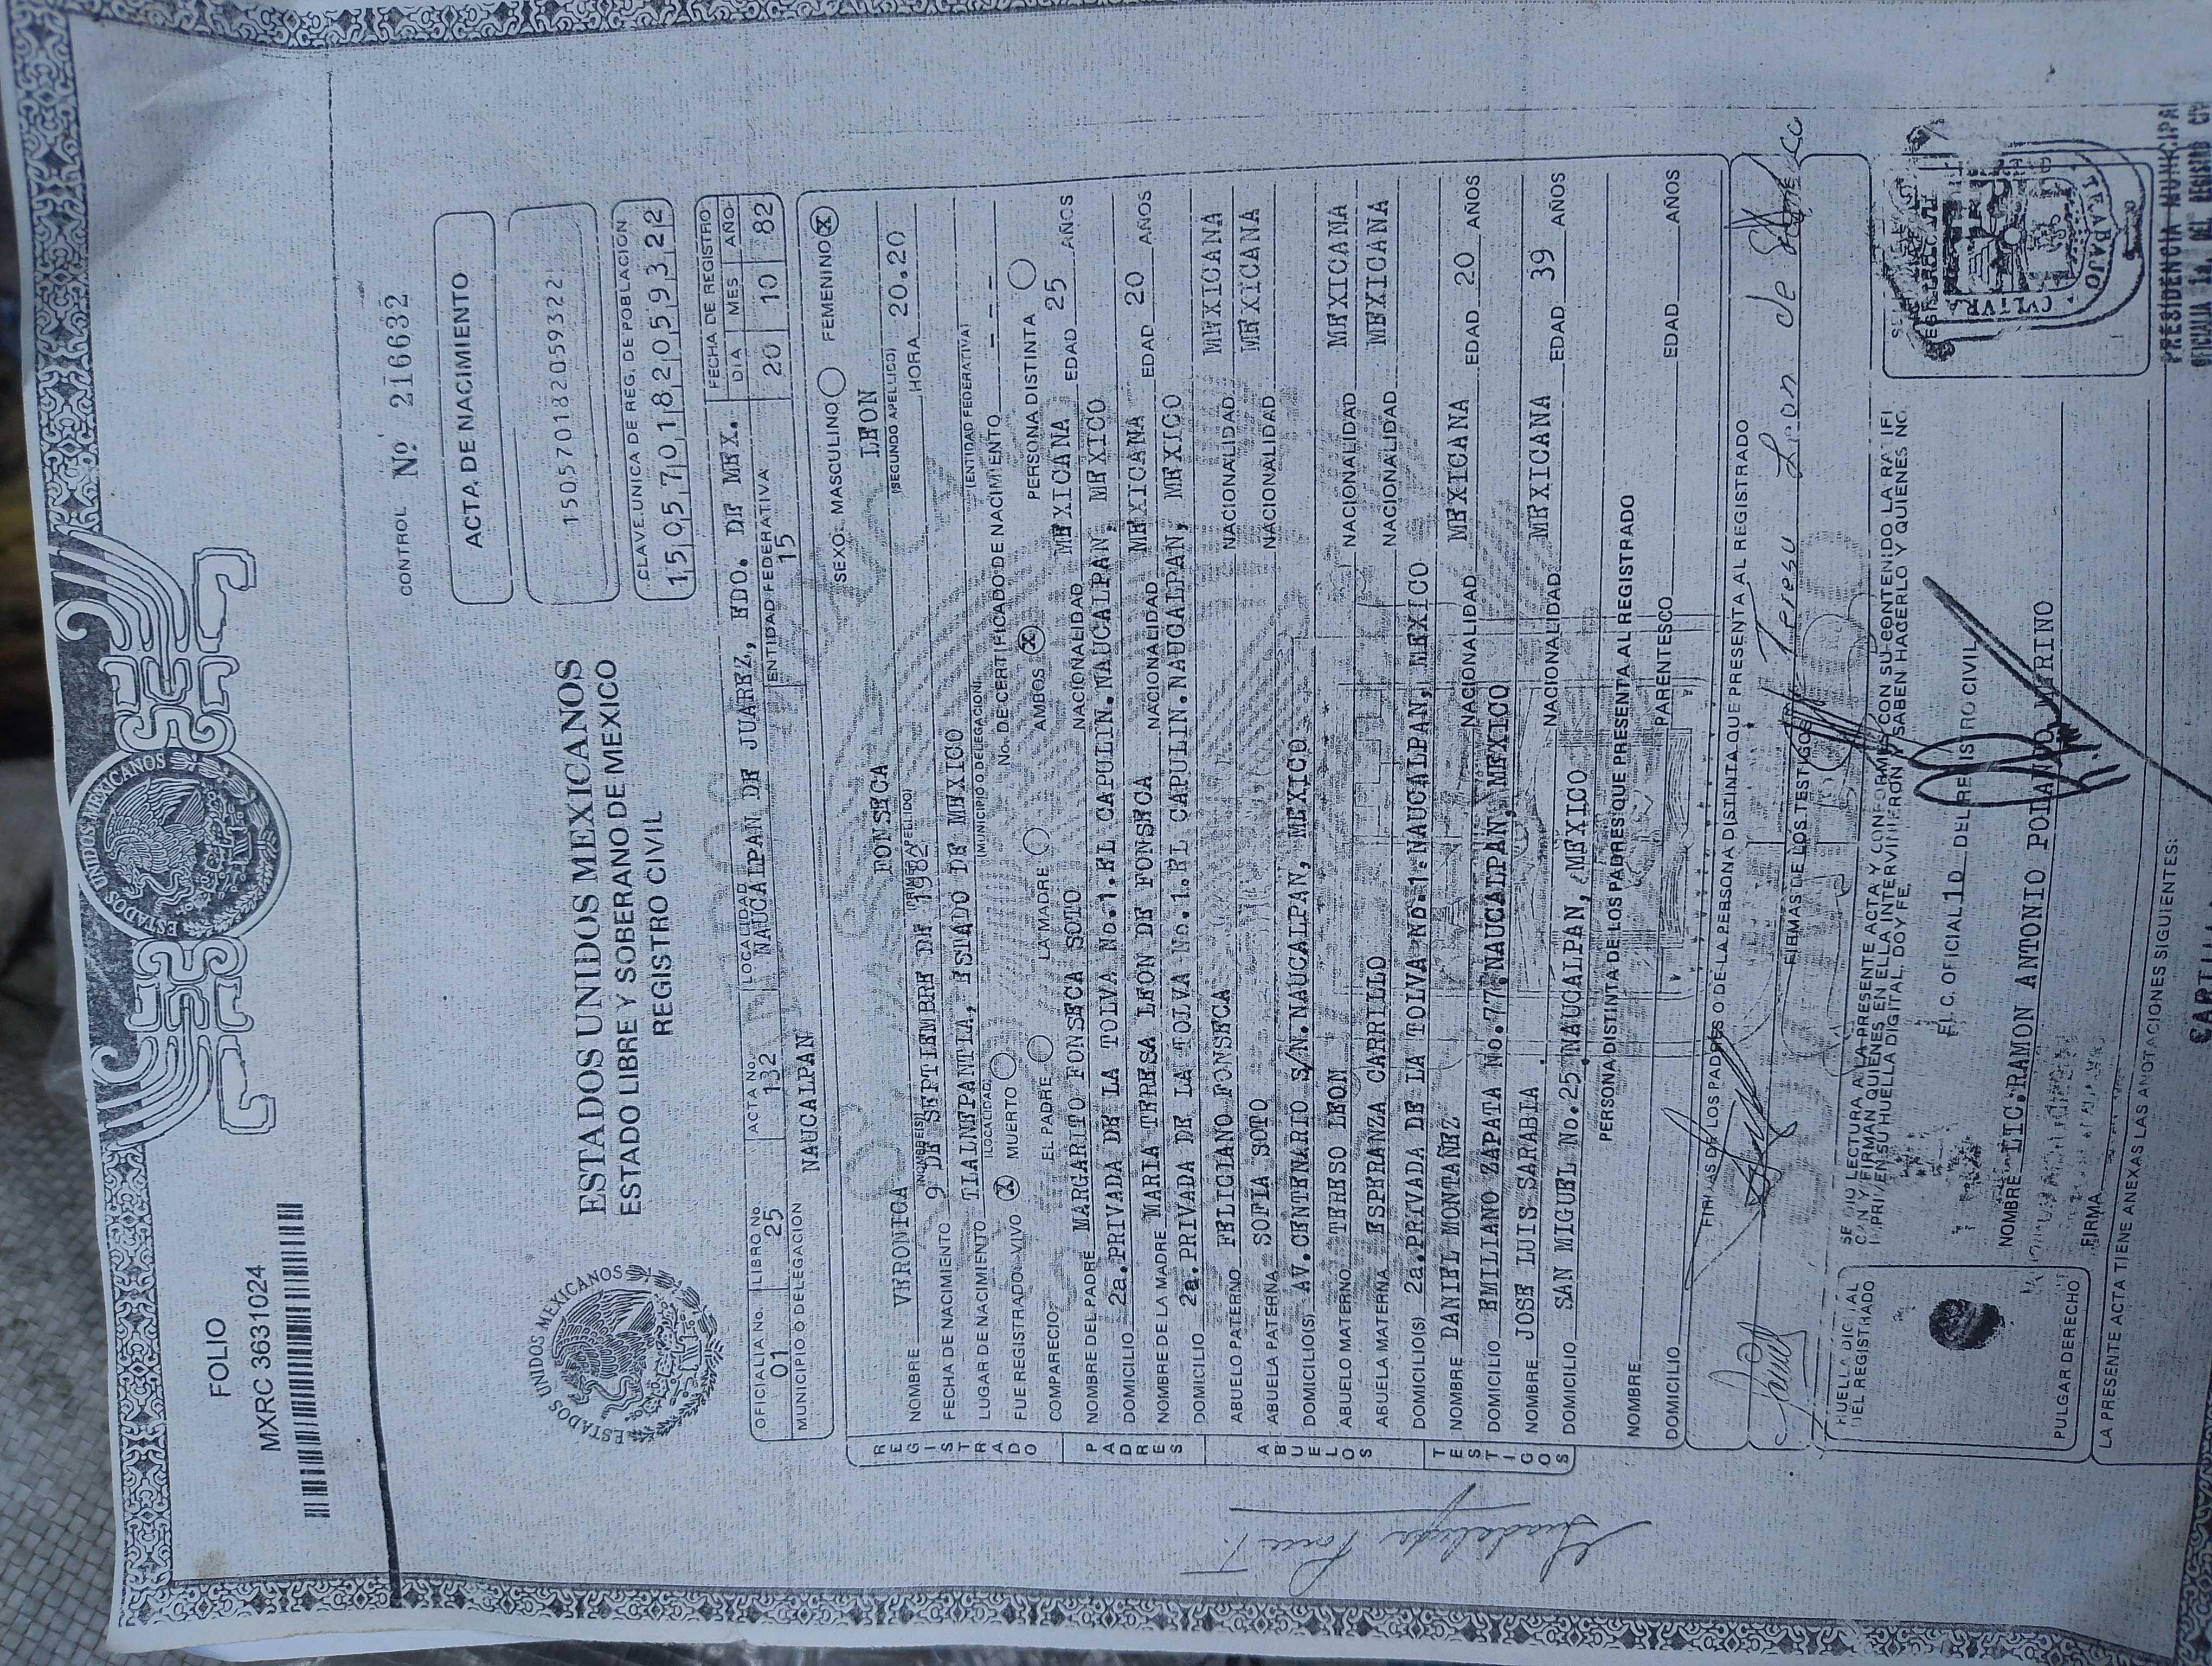 ESTADOS UNIDOS MEXICANOS
FOLIO
MXRC 3631024
CONTROL Nº 216632
ESTADOS UNIDOS MEXICANOS
ESTADOS UNIDOS MEXICANOS
ESTADO LIBRE Y SOBERANO DE MEXICO
REGISTRO CIVIL
ACTA DE NACIMIENTO
150570182059322
CLAVE UNICA DE REG. DE POBLACION
150570182059322
OFICIALIA No. LIBRO No. ACTA No. LOCALIDAD FECHA DE REGISTRO
01 25 132 NAUCALPAN DE JUAREZ, EDO. DE MEX. DIA MES AÑO
MUNICIPIO O DELEGACION ENTIDAD FEDERATIVA 20 10 82
NAUCALPAN 15
SEXO: MASCULINO FEMENINO X
REGISTRADO
VERONICA FONSECA LEON
NOMBRE (NOMBRE(S)) (PRIMER APELLIDO) (SEGUNDO APELLIDO)
FECHA DE NACIMIENTO 9 DE SEPTIEMBRE DE 1982 HORA 20.20
LUGAR DE NACIMIENTO TLALNEPANTLA, ESTADO DE MEXICO
(LOCALIDAD) (MUNICIPIO O DELEGACION) (ENTIDAD FEDERATIVA)
FUE REGISTRADO: VIVO X MUERTO No. DE CERTIFICADO DE NACIMIENTO - - -
COMPARECIO: EL PADRE LA MADRE AMBOS X PERSONA DISTINTA
PADRES
NOMBRE DEL PADRE MARGARITO FONSECA SOTO NACIONALIDAD MEXICANA EDAD 25 AÑOS
DOMICILIO 2a.PRIVADA DE LA TOLVA No.1.EL CAPULIN.NAUCALPAN, MEXICO
NOMBRE DE LA MADRE MARIA TERESA LEON DE FONSECA NACIONALIDAD MEXICANA EDAD 20 AÑOS
DOMICILIO 2a.PRIVADA DE LA TOLVA No.1.EL CAPULIN.NAUCALPAN, MEXICO
ABUELOS
ABUELO PATERNO FELICIANO FONSECA NACIONALIDAD MEXICANA
ABUELA PATERNA SOFIA SOTO NACIONALIDAD MEXICANA
DOMICILIO(S) AV.CENTENARIO S/N.NAUCALPAN, MEXICO
ABUELO MATERNO TERESO LEON NACIONALIDAD MEXICANA
ABUELA MATERNA ESPERANZA CARRILLO NACIONALIDAD MEXICANA
DOMICILIO(S) 2a.PRIVADA DE LA TOLVA No.1.NAUCALPAN, MEXICO
TESTIGOS
NOMBRE DANIEL MONTAÑEZ NACIONALIDAD MEXICANA EDAD 20 AÑOS
DOMICILIO EMILIANO ZAPATA No.77.NAUCALPAN, MEXICO
NOMBRE JOSE LUIS SARABIA NACIONALIDAD MEXICANA EDAD 39 AÑOS
DOMICILIO SAN MIGUEL No.25 NAUCALPAN, MEXICO
PERSONA DISTINTA DE LOS PADRES QUE PRESENTA AL REGISTRADO
NOMBRE PARENTESCO EDAD AÑOS
DOMICILIO
FIRMAS DE LOS PADRES O DE LA PERSONA DISTINTA QUE PRESENTA AL REGISTRADO
Teresa Leon de
FIRMAS DE LOS TESTIGOS
Daniel
HUELLA DIGITAL DEL REGISTRADO
PULGAR DERECHO
SE DIO LECTURA A LA PRESENTE ACTA Y CONFORMES CON SU CONTENIDO LA RATIFI
CAN Y FIRMAN QUIENES EN ELLA INTERVINIERON Y SABEN HACERLO Y QUIENES NO,
IMPRIMEN SU HUELLA DIGITAL. DOY FE.
EL C. OFICIAL 1o DEL REGISTRO CIVIL
NOMBRE LIC.RAMON ANTONIO
FIRMA
CULTURA TRABAJO
PRESIDENCIA MUNICIPAL
OFICIALIA 1a. DEL REGISTRO
LA PRESENTE ACTA TIENE ANEXAS LAS ANOTACIONES SIGUIENTES:
Guadalupe Ponce T.